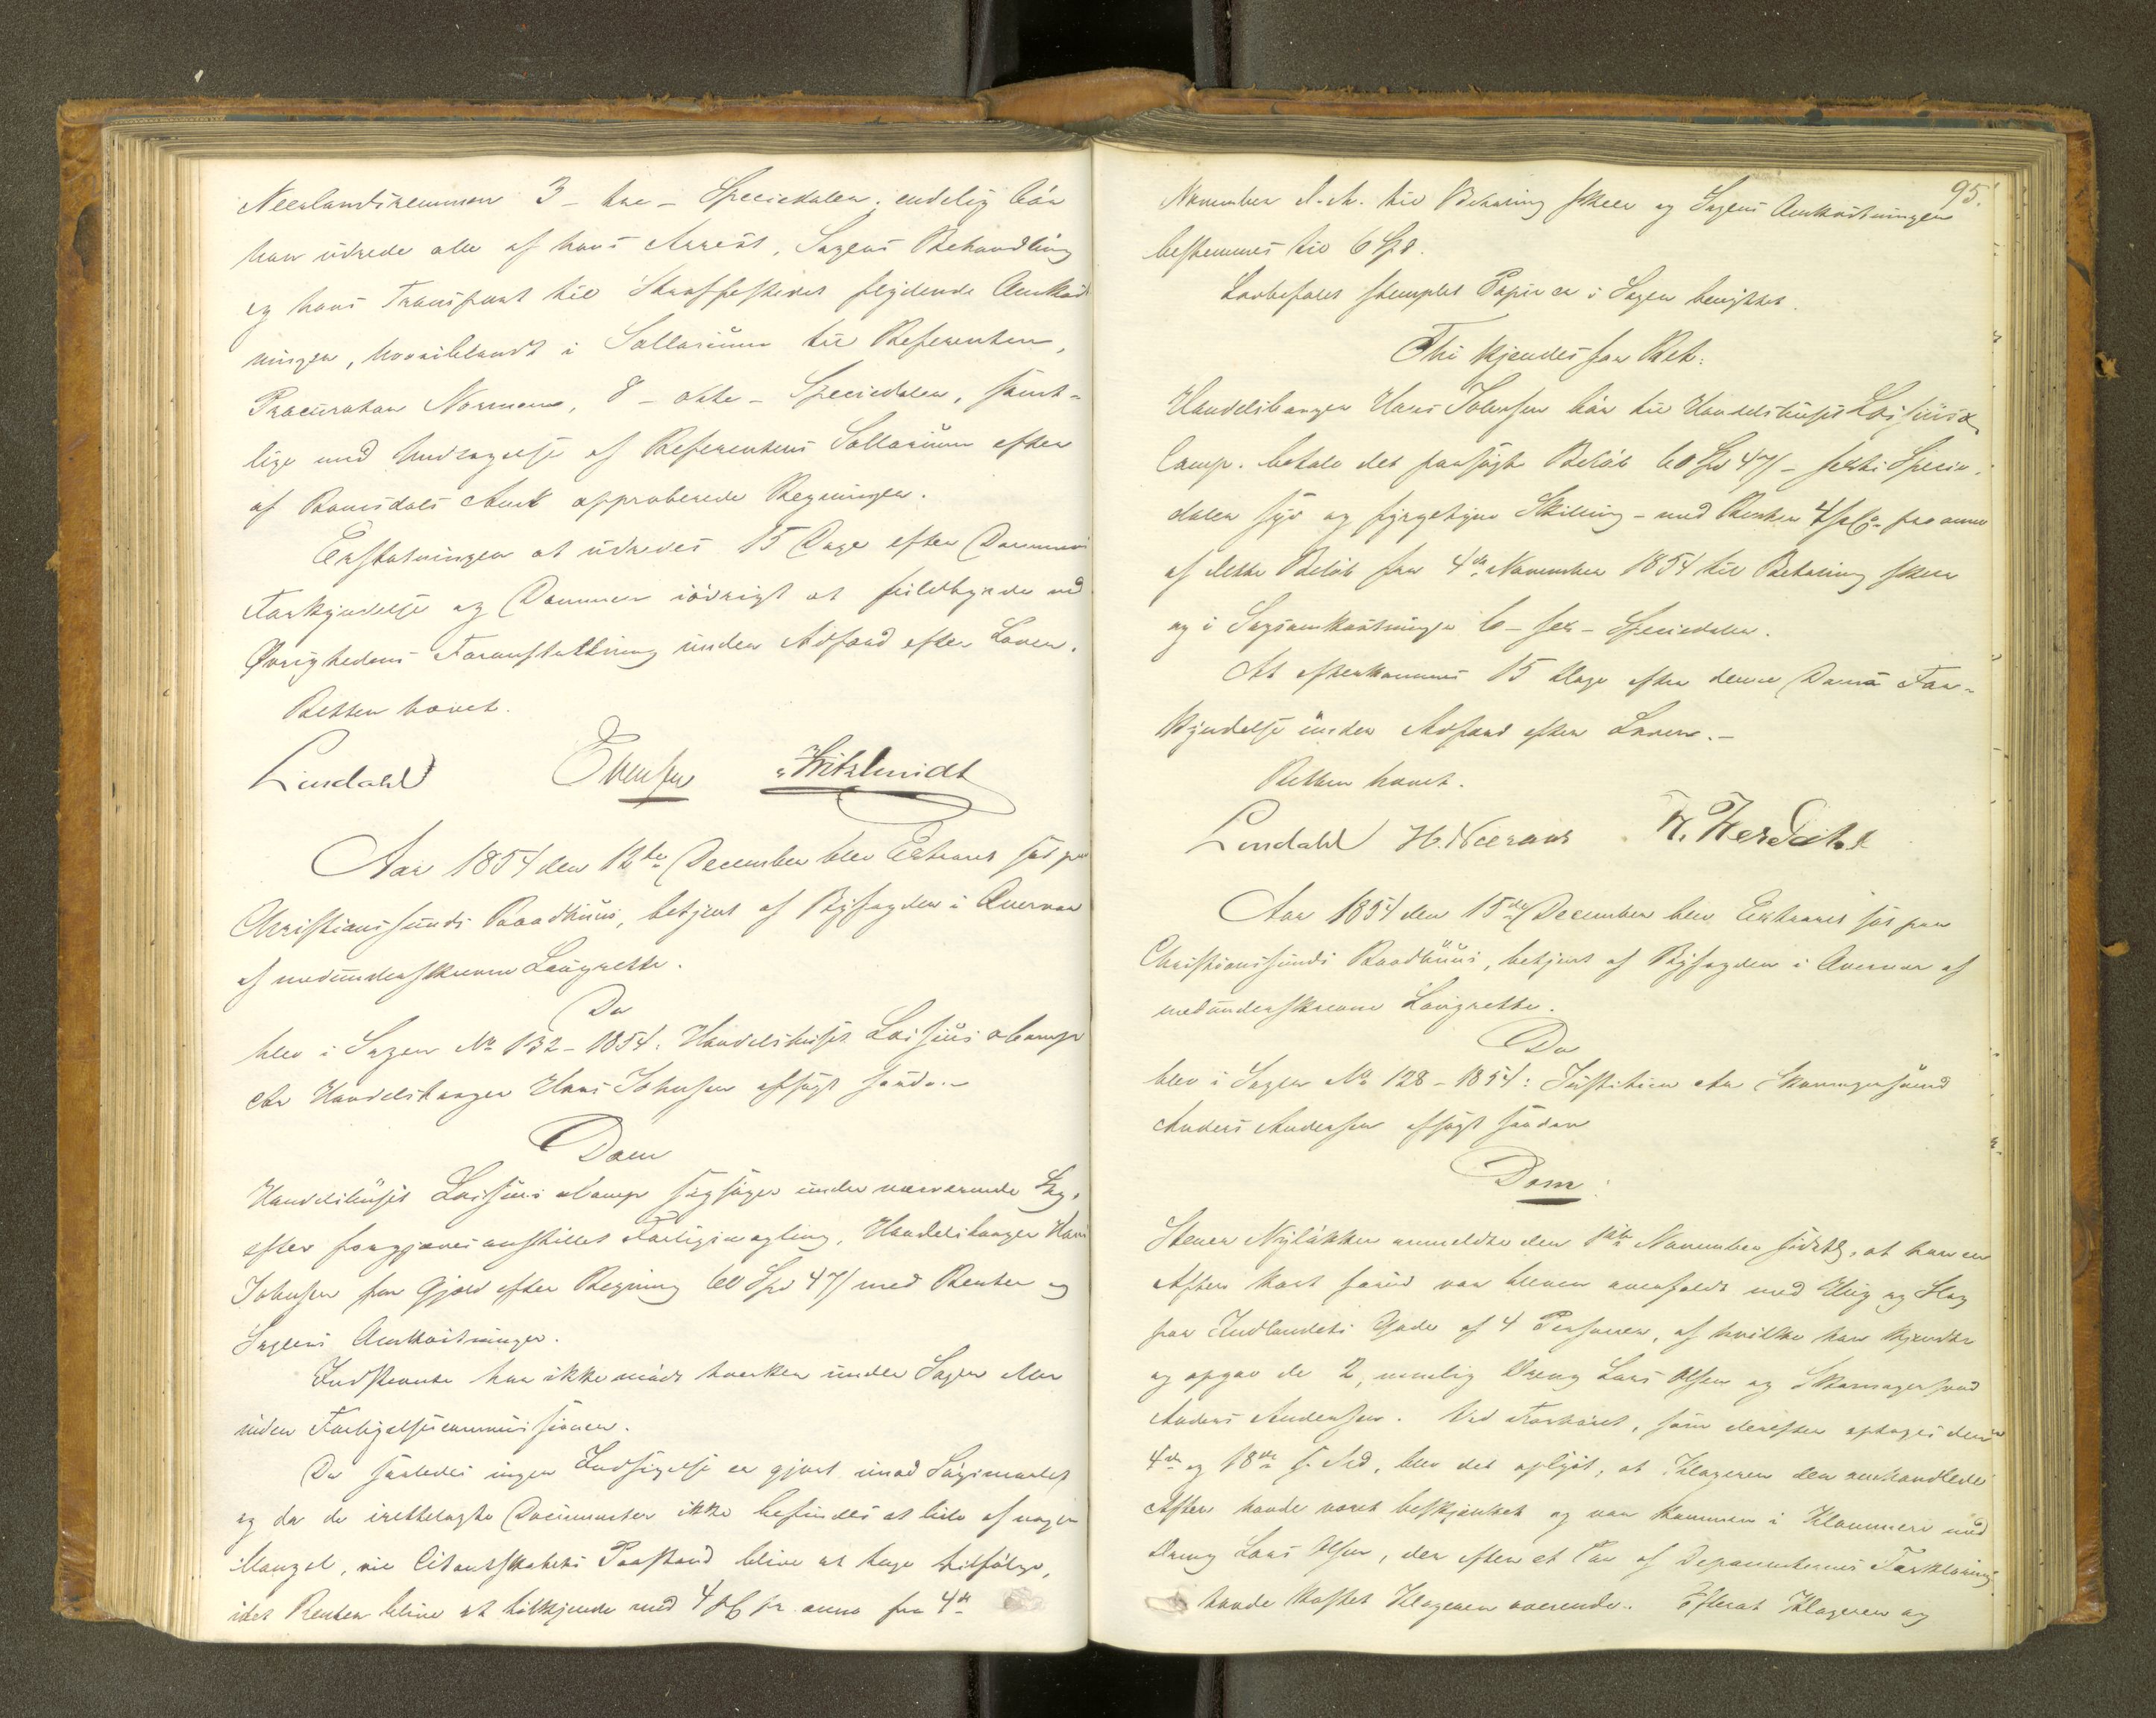 Neerlandsremmen 3 - tre - Speciedaler; endelig bør
han udrede alle af hans Arrest, Sagens Behandling
og hans Transport til Strafstedet flydende Omkost
ninger, hvoriblandt i Sallarium til Referenten,
Procurator Normann, 8 - otte - Speciedaler, samt-
lige med Undtagelse af Referentens Sallarium efter
af Romsdals Amt approberede Regninger.
Erstatningen at udredes 15 Dage efter Dommens
Forkyndelse og Dommen iøvrigt at fuldbyrde ved
Øvrighedens Foranstaltning under Adfærd efter Loven.
Retten hævet.
Lindahl Evensen Hitzlmidt
Aar 1854 den 12te December blev Extraret sat paa
Christianssunds Raadhuus, betjent af Byfogden i Overvær
af medunderskrevne Laugrette.
Da
blev i Sagen No 132 - 1854: Handelshuset Loisius & Comp
ctr Handelsborger Hans Johnsen afsagt saadan
Dom
Handelshuset Loisius & Comp sagsøger under nærværende Sag,
efter forgjæves anstillet Forligsmægling, Handelsborger Hans
Johnsen for Gjæld efter Regning 60 Spd 47 s med Renter og
Sagens Omkostninger.
Indstevnte har ikke mødt hverken under Sagen eller
inden Forligelsescommissionen.
Da saaledes ingen Indsigelse er gjort imod Søgsmaalet
og da de irettelagte Documenter ikke befindes at lide af nogen
Mangel, vil Citantskabets Paastand blive at tage tilfølge,
idet Renten blive at tilkjende med 4 pC pr. anno fra 4de
95.
November d. A. til Betaling skeer og Sagens Omkostninger
bestemmes til 6 Spd.
Lovbefalet stemplet Papir er i Sagen benyttet.
Thi kjendes for Ret:
Handelsborger Hans Johnsen bør til Handelshuset Loisius &
Comp. betale det paasøgte Beløb 60 Spd 47 s - sexti Specie-
daler syv og fyrgetyve Skilling - med Renter 4 pCt pro anno
af dette Beløb fra 4de November 1854 til Betaling skeer
og i Sagsomkostninger 6 - sex - Speciedaler.
At efterkommes 15 Dage efter denne Doms For-
kyndelse under Adfærd efter Loven. -
Retten hævet.
Lindahl H. Neeraas
Aar 1854 den 15de December blev Extraret sat paa
Christianssunds Raadhuus, betjent af Byfogden i Overvær af
medunderskrevne Laugrette.
Da
blev i Sagen No 128 - 1854: Justitien ctr Skomagersvend
Anders Andersen afsagt saadan
Dom:
Stener Nyløkken anmeldte den November sidstl, at han en
Aften kort forud var bleven overfaldt med Hug og Slag
paa Indlandets Gade af 4 Personer, af hvilke han kjendte
og opgav de 2, nemlig Dreng Lars Olsen og Skomagersvend
Anders Andersen. Ved Forhøret, som derefter optoges den
4de og 18de f. Md, blev det oplyst, at Klageren den omhandlede
Aften havde været beskjænket og var kommen i Klammeri med
Dreng Lars Olsen, der efter et Par af Deponenternes Forklaring
havde kastet Klageren overende. Efterat Klageren og